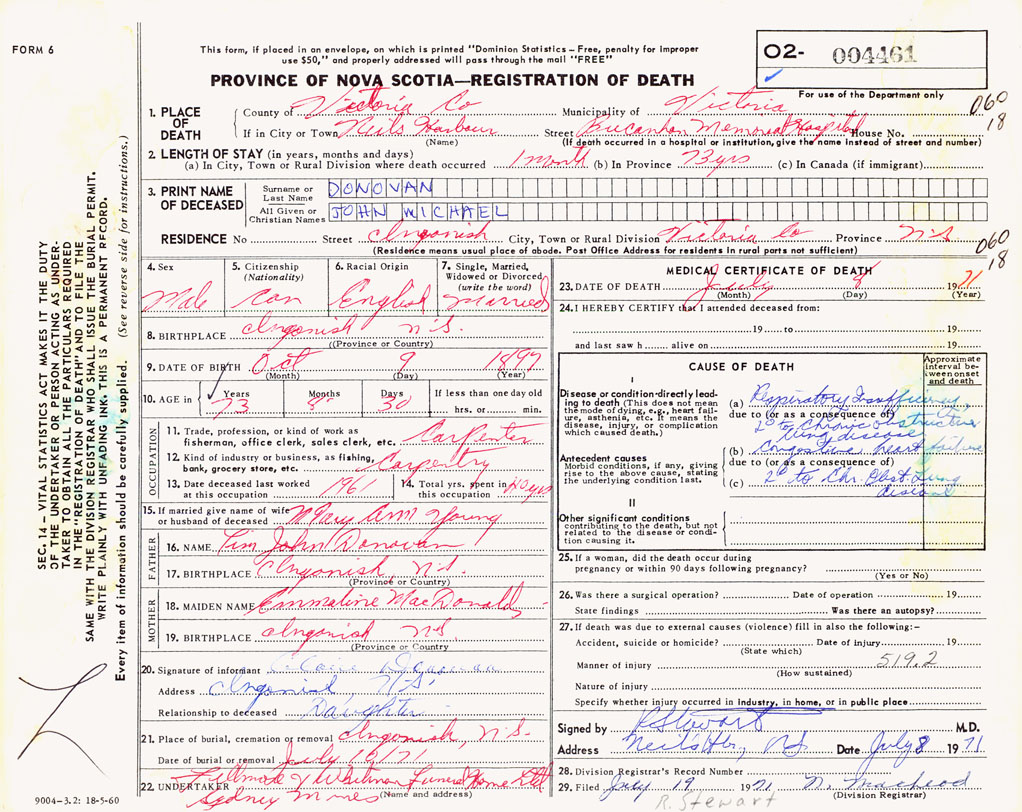 FORM 6
This form, if placed in an envelope, on which is printed "Dominion Statistics – Free, penalty for improper
use $50," and properly addressed will pass through the mail "FREE"
PROVINCE OF NOVA SCOTIA—REGISTRATION OF DEATH
O2- 004461
For use of the Department only
060
18
1. PLACE OF DEATH
County of Victoria Co Municipality of Victoria
If in City or Town Neils Harbour Street Bucanhan Memorial Hospital House No.
(Name) (If death occurred in a hospital or institution, give the name instead of street and number)
2. LENGTH OF STAY (in years, months and days)
(a) In City, Town or Rural Division where death occurred 1 month (b) In Province 73 yrs (c) In Canada (if immigrant)
3. PRINT NAME OF DECEASED
Surname or Last Name DONOVAN
All Given or Christian Names JOHN MICHAEL
RESIDENCE No Street Ingonish City, Town or Rural Division Victoria Co Province N.S
(Residence means usual place of abode. Post Office Address for residents in rural parts not sufficient)
060
18
4. Sex Male
5. Citizenship (Nationality) Can
6. Racial Origin English
7. Single, Married, Widowed or Divorced (write the word) Married
8. BIRTHPLACE Ingonish N.S.
(Province or Country)
9. DATE OF BIRTH Oct 9 1897
(Month) (Day) (Year)
10. AGE in Years Months Days If less than one day old
73 8 30 hrs. or min.
OCCUPATION
11. Trade, profession, or kind of work as
fisherman, office clerk, sales clerk, etc. Carpenter
12. Kind of industry or business, as fishing,
bank, grocery store, etc. Carpentry
13. Date deceased last worked at this occupation 1961
14. Total yrs. spent in this occupation 40 yrs
15. If married give name of wife
or husband of deceased Mary Ann Young
FATHER
16. NAME Tim John Donovan
17. BIRTHPLACE Ingonish, N.S.
(Province or Country)
MOTHER
18. MAIDEN NAME Emmaline MacDonald
19. BIRTHPLACE Ingonish N.S.
(Province or Country
20. Signature of informant
Address Ingonish, N.S.
Relationship to deceased Daughter
21. Place of burial, cremation or removal Ingonish, N.S.
Date of burial or removal July 10/71
22. UNDERTAKER Fillmore & Whitman Funeral Home Ltd
Sydney Mines
(Name and address)
MEDICAL CERTIFICATE OF DEATH
23. DATE OF DEATH July 8 1971
(Month) (Day) (Year)
24. I HEREBY CERTIFY that I attended deceased from:
19 to 19
and last saw h alive on 19
CAUSE OF DEATH
Approximate interval between onset and death
I
Disease or condition directly leading to death (This does not mean
the mode of dying, e.g., heart failure, asthenia, etc. It means the
disease, injury, or complication
which caused death.)
(a) Respiratory Insufficiency
due to (or as a consequence of)
2° to Chronic obstructive
lung disease
Antecedent causes
Morbid conditions, if any, giving
rise to the above cause, stating
the underlying condition last.
(b) Congestive heart failure
due to (or as a consequence of)
(c) 2° to Chr. Obst. Lung
disease
II
Other significant conditions
contributing to the death, but not
related to the disease or condition causing it.
25. If a woman, did the death occur during
pregnancy or within 90 days following pregnancy?
(Yes or No)
26. Was there a surgical operation? Date of operation 19
State findings Was there an autopsy?
27. If death was due to external causes (violence) fill in also the following:-
Accident, suicide or homicide? Date of injury 19
(State which)
Manner of injury 519.2
(How sustained)
Nature of injury
Specify whether injury occurred in industry, in home, or in public place
Signed by R Stewart M.D.
Address Neil's Hr, NS Date July 8 1971
28. Division Registrar's Record Number
29. Filed July 19 1971 N. MacLeod
(Division Registrar)
R. Stewart
SEC. 14 – VITAL STATISTICS ACT MAKES IT THE DUTY
OF THE UNDERTAKER OR PERSON ACTING AS UNDERTAKER TO OBTAIN ALL THE PARTICULARS REQUIRED
IN THE "REGISTRATION OF DEATH" AND TO FILE THE
SAME WITH THE DIVISION REGISTRAR WHO SHALL ISSUE THE BURIAL PERMIT.
WRITE PLAINLY WITH UNFADING INK. THIS IS A PERMANENT RECORD.
Every item of information should be carefully supplied. (See reverse side for instructions.)
9004-3.2: 18-5-60